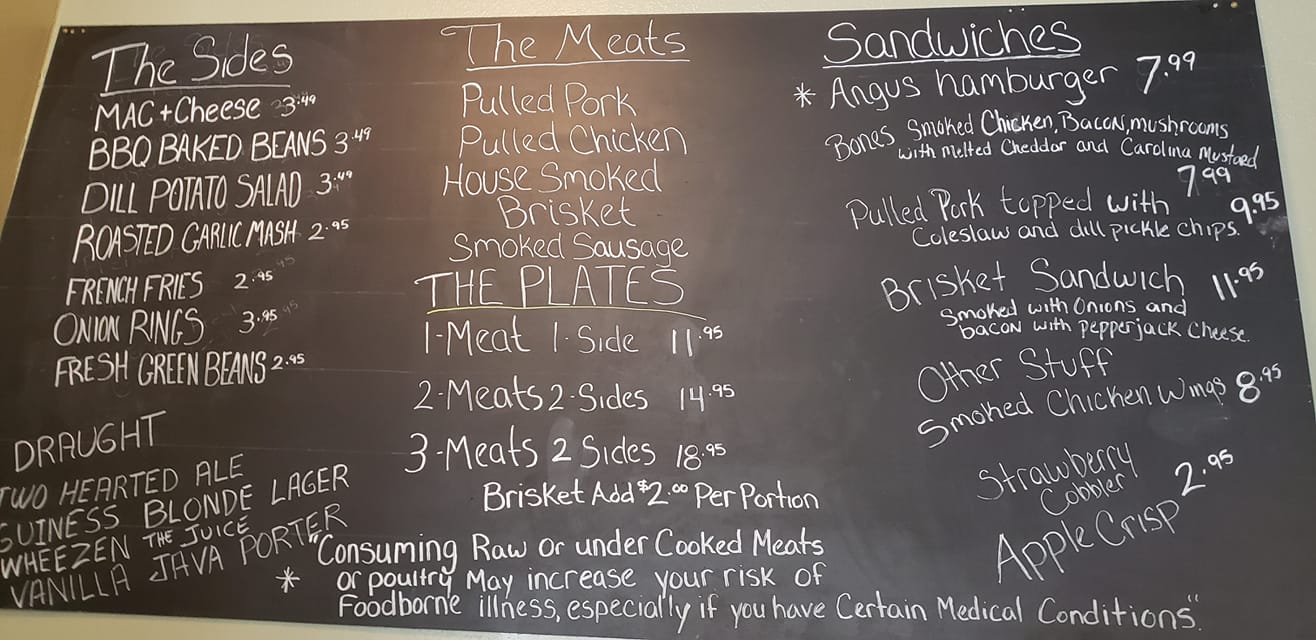 The Sides
MAC + Cheese 3.49
BBQ BAKED BEANS 3.49
DILL POTATO SALAD 3.49
ROASTED GARLIC MASH 2.95
FRENCH FRIES 2.95
ONION RINGS 3.95
FRESH GREEN BEANS 2.95
DRAUGHT
TWO HEARTED ALE
GUINESS BLONDE LAGER
WHEEZEN THE JUICE
VANILLA JAVA PORTER
The Meats
Pulled Pork
Pulled Chicken
House Smoked
Brisket
Smoked Sausage
THE PLATES
1-Meat 1-Side 11.95
2-Meats 2-Sides 14.95
3-Meats 2 Sides 18.95
Brisket Add $2.00 Per Portion
Sandwiches
* Angus hamburger 7.99
Bones Smoked Chicken, Bacon, mushrooms
with melted Cheddar and Carolina Mustard
7.99
Pulled Pork topped with 9.95
Coleslaw and dill pickle chips.
Brisket Sandwich 11.95
Smoked with Onions and
bacon with pepperjack cheese.
Other Stuff
Smoked Chicken Wings 8.95
Strawberry
Cobbler 2.95
Apple Crisp
"Consuming Raw or under Cooked Meats
* or poultry May increase your risk of
Foodborne illness, especially if you have Certain Medical Conditions".